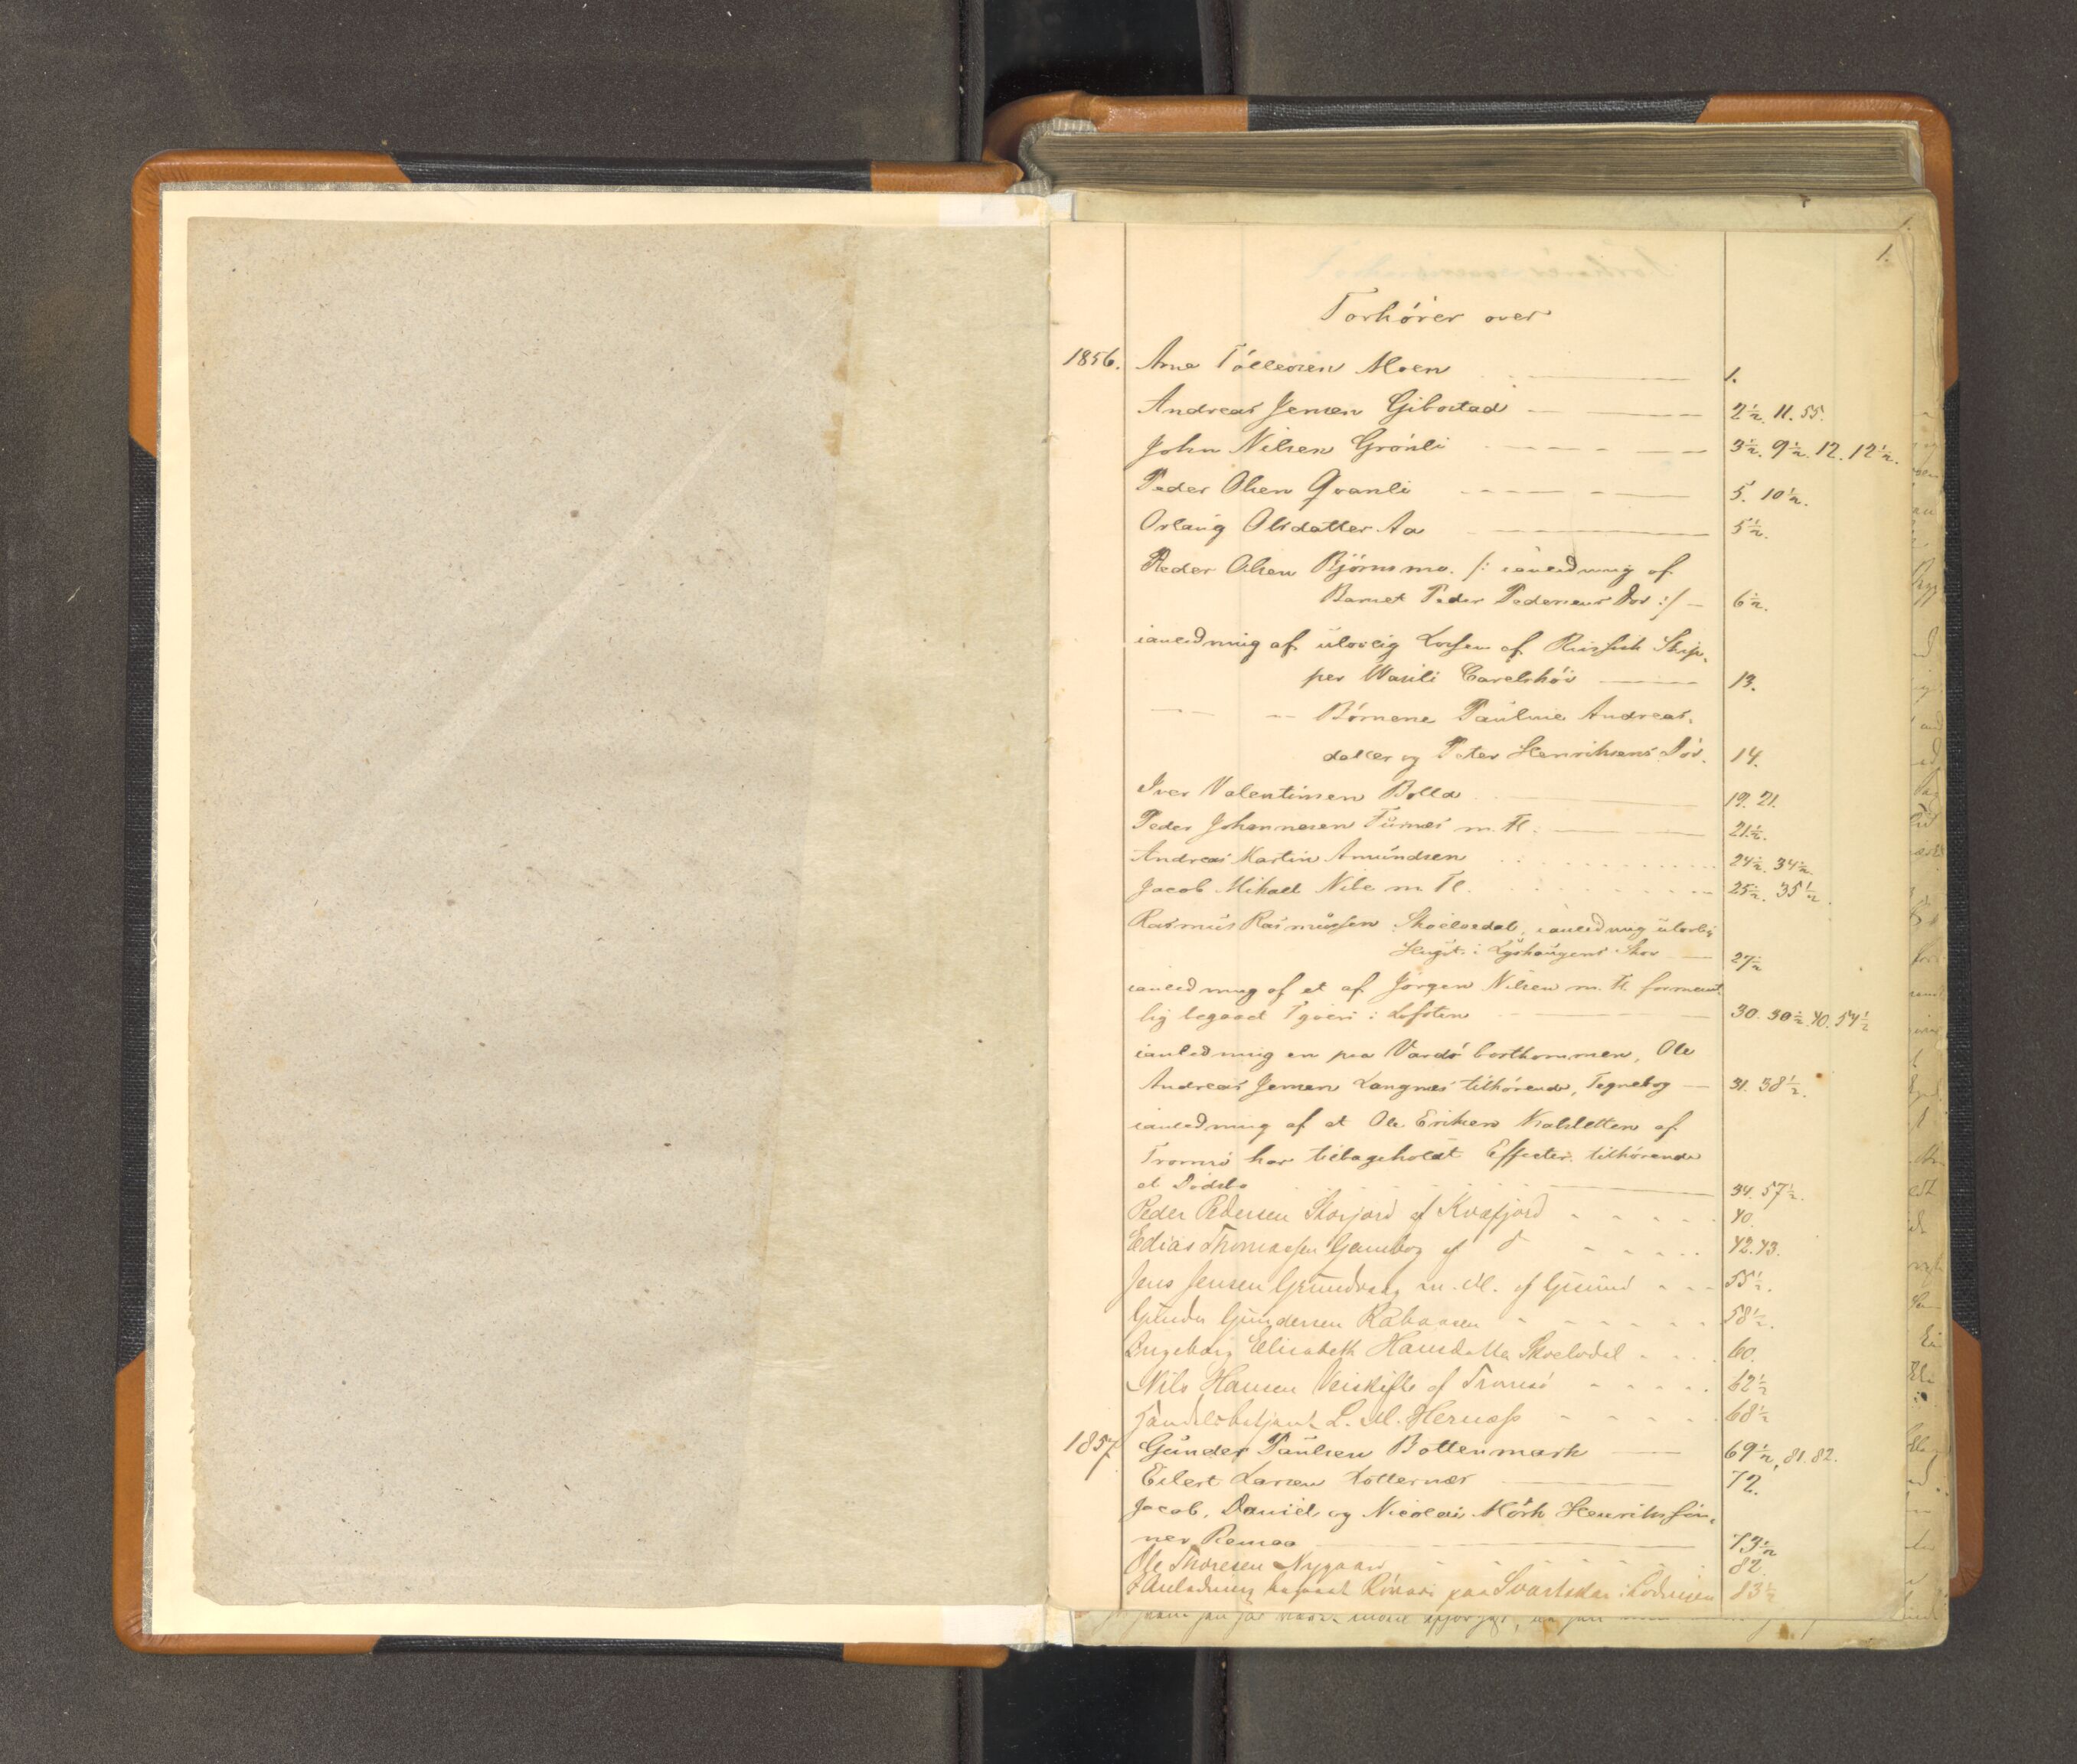 1.
Forhörer over
1856. Arne Tollevsen Moen 1.
Andreas Jensen Gibostad 2½. 11. 55.
John Nilsen Grönli 3½. 9½. 12. 12½.
Peder Olsen Qvanli 5. 10½.
Oslaug Olsdatter Aa 5½.
Peder Olsen Björnsmo. /: ianledning af
Barnet Peder Pedersens Död :/ 6½.
ianledning af ulovlig Lossen af Russisk Skip-
per Wasili 13.
Börnene Pauline Andreas-
datter og Peter Henriksens Död. 14.
Iver Valentinsen Bolla 19. 21.
Peder Johannesen Furnes m. Fl. 21½.
Andreas Martin Amundsen 24½. 34½.
Jacob Mikael Nibe m. Fl. 25½. 35½.
Rasmus Rasmussen Skoelvdal, ianledning ulovlig
Hugst i Skov 27½
ianledning af et af Jörgen Nilsen m. Fl. forment-
lig begaaet Tyveri i Lofoten 30. 30½. 40. 54½
ianledning en paa Vardö bortkommen, Ole
Andreas Jensen Langnes tilhörende, Tegnebog 31. 38½.
ianledning af at Ole Eriksen af
Tromsö har tilbageholdt Effecter tilhörende
et Dödsbo 34. 57½.
Peder Pedersen Storjord af Kvæfjord 40.
Edias Thomassen af d 42. 43.
Jens Jensen m. Fl. af 55½.
Gunder Gundersen 58½.
Ingeborg Elisabeth Hansdatter Skoelvdal 60.
Nils Hansen af Tromsö 62½
Handelsbetjent L. M. Hernæss 68½
1857 Gunder Paulsen Bottenmark 69½, 81. 82.
Eilert Larsen 72.
Jacob, Daniel og Nicolai Mörk Henrikssön-
ner Remaa 73½
Ole Thoresen Nygaard 82.
I Anledning begaaet paa i Lödingen 83½